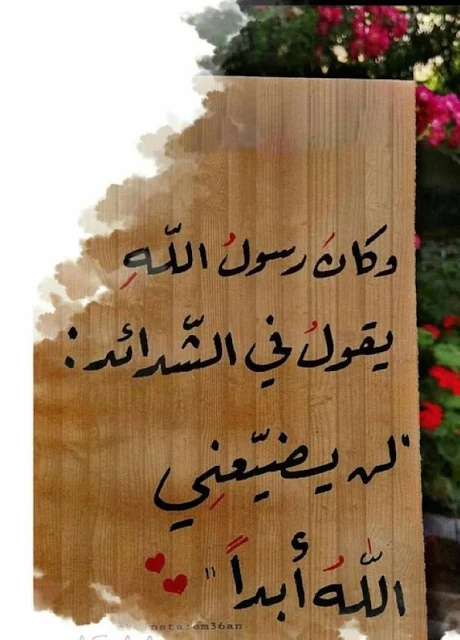 وكانَ رسولُ اللّهِ
يقولُ في الشّدائد :
"لن يضيّعنِي
اللّٰهُ أبداً"
insta:em36an